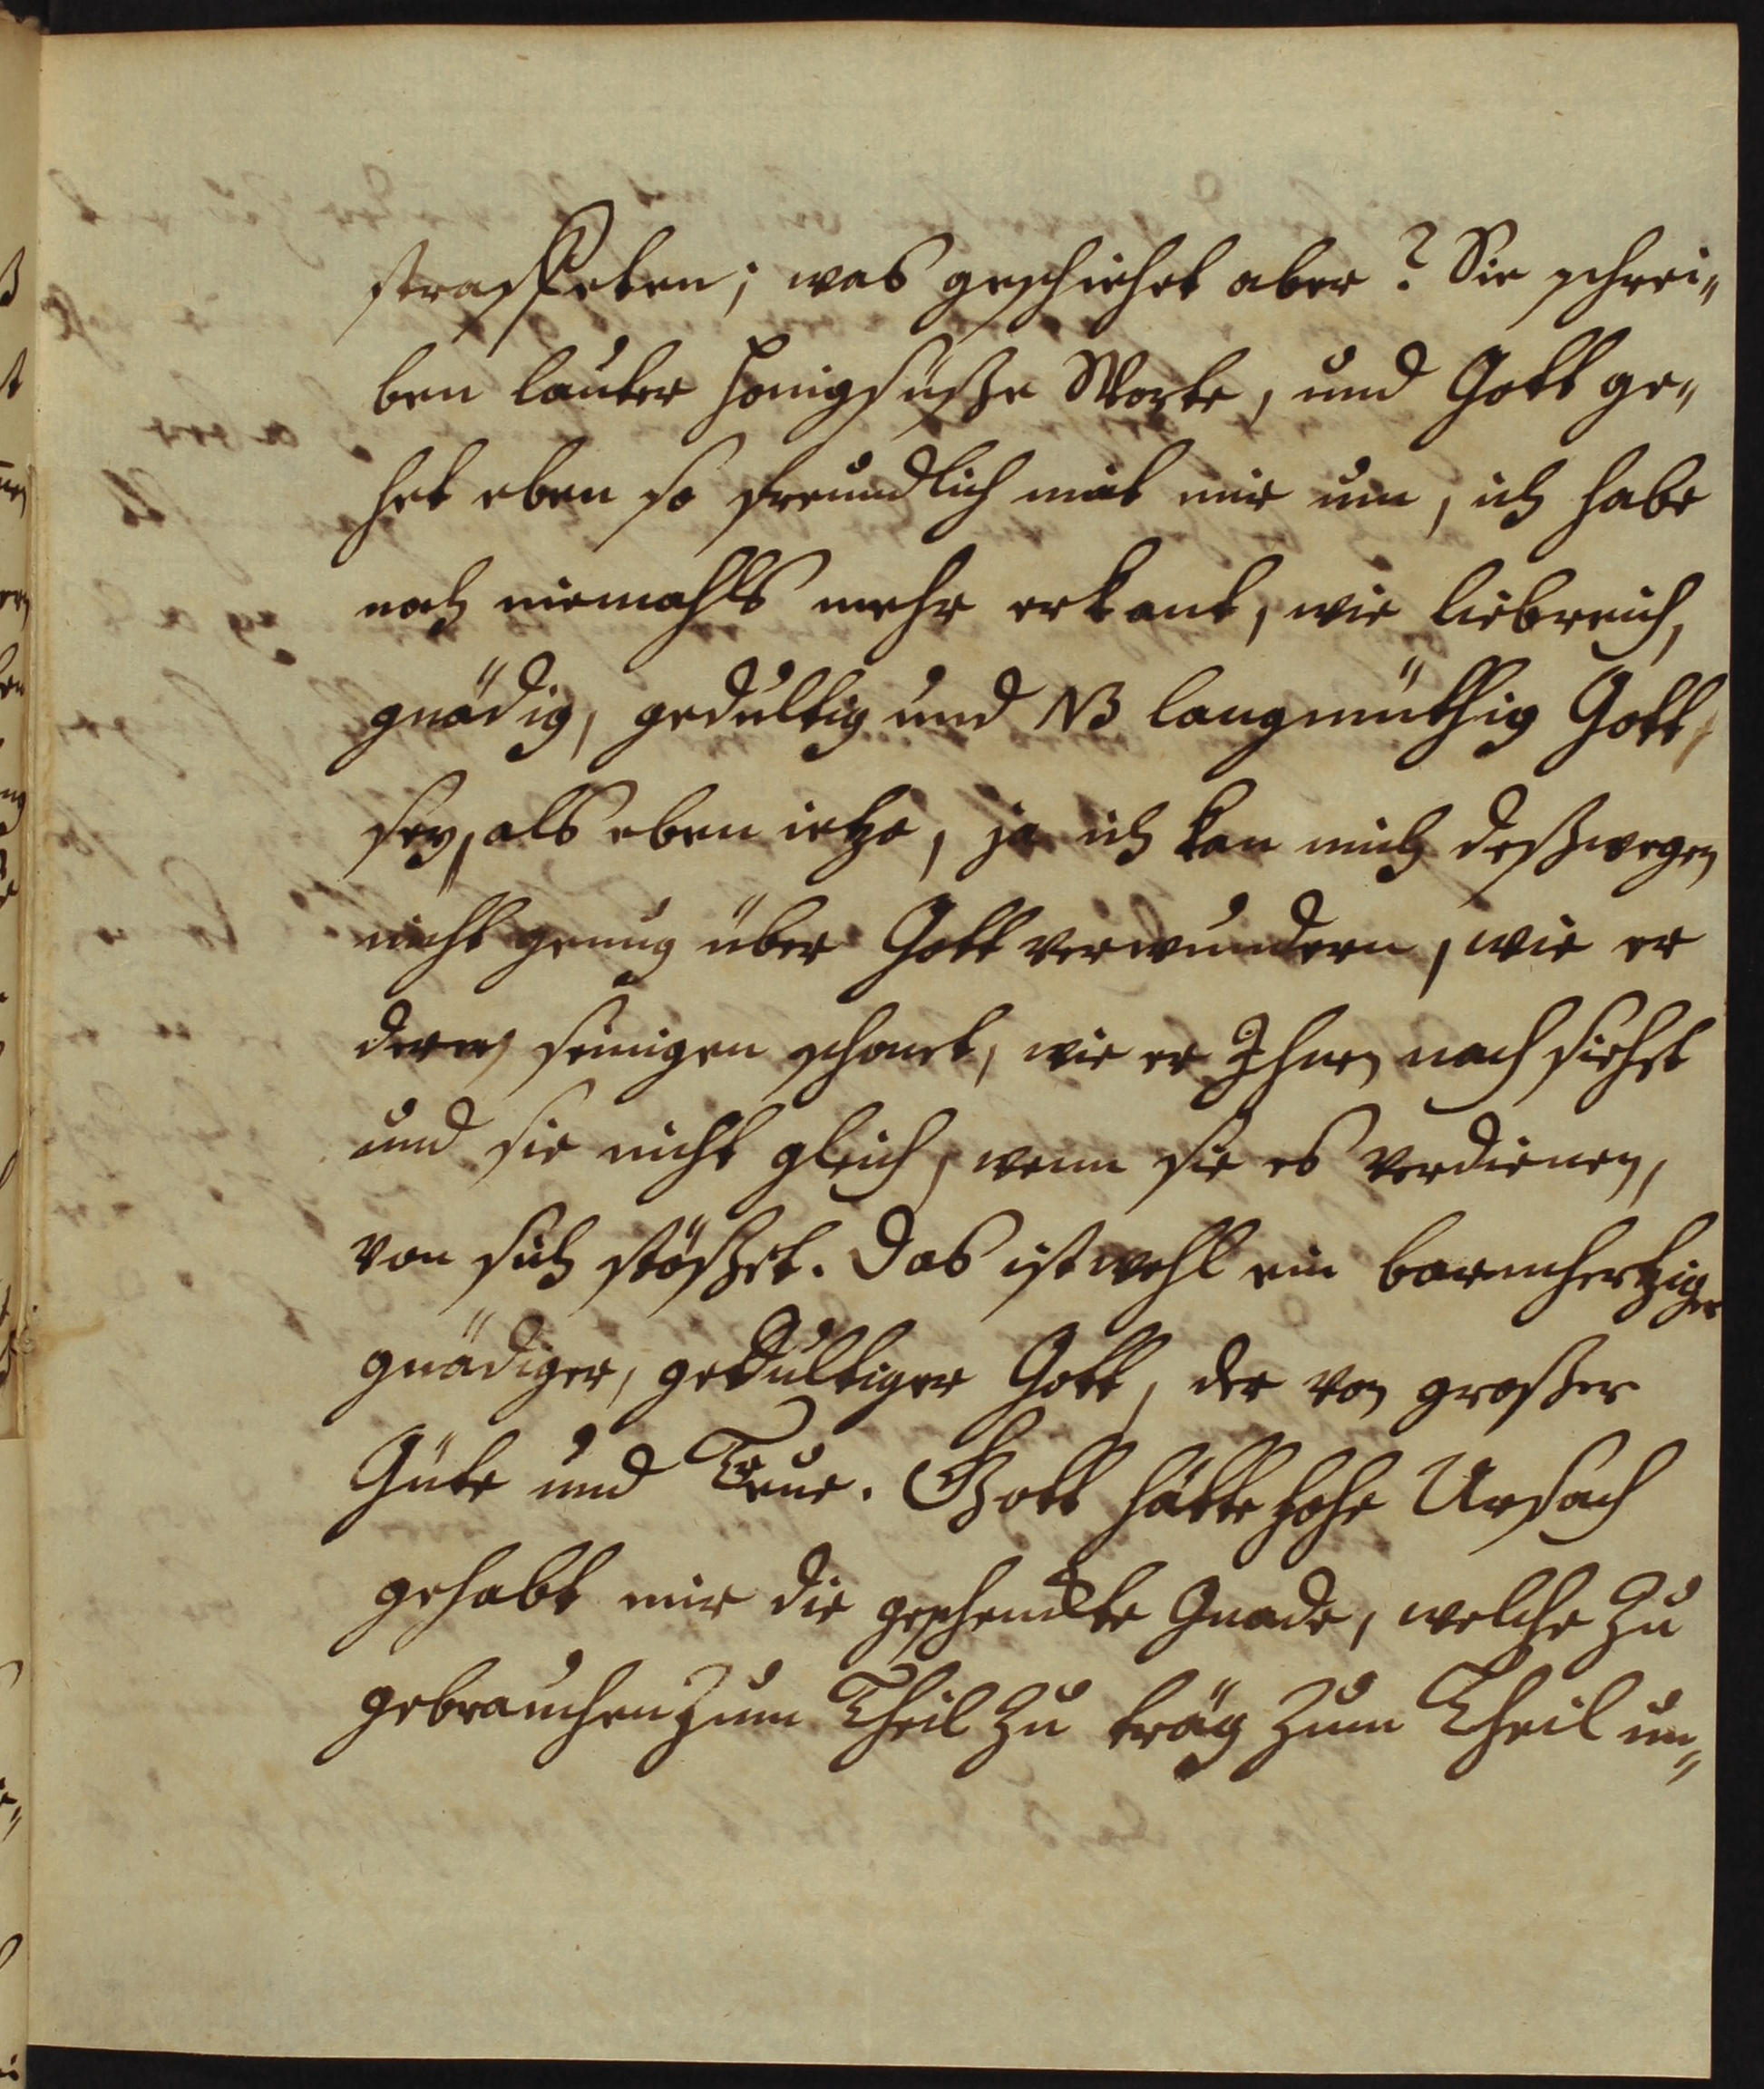 straffeten; was geschiehet aber? Sie schrei„
ben lauter honigsüße Worte, und Gott ge„
het eben so freundlich mit mir um, ich habe
noch niemahls mehr erkant, wie liebreich,
gnädig, gedultig und NB langmüthig Gott
sey, als eben ietzo, ja ich kan mich deßwegen
nicht genug über Gott verwundern, wie er
derer seinigen schonet, wie er Ihnen nach siehet
und sie nicht gleich, wenn sie es verdienen,
von sich stößet. Das ist wohl ein barmhertziger
gnädiger, gedultiger Gott, der von großer
Güte und Treue. Gott hätte hohe Ursach
gehabt mir die geschenckte Gnade, welche zu
gebrauchen zum Theil zu träg zum Theil un„